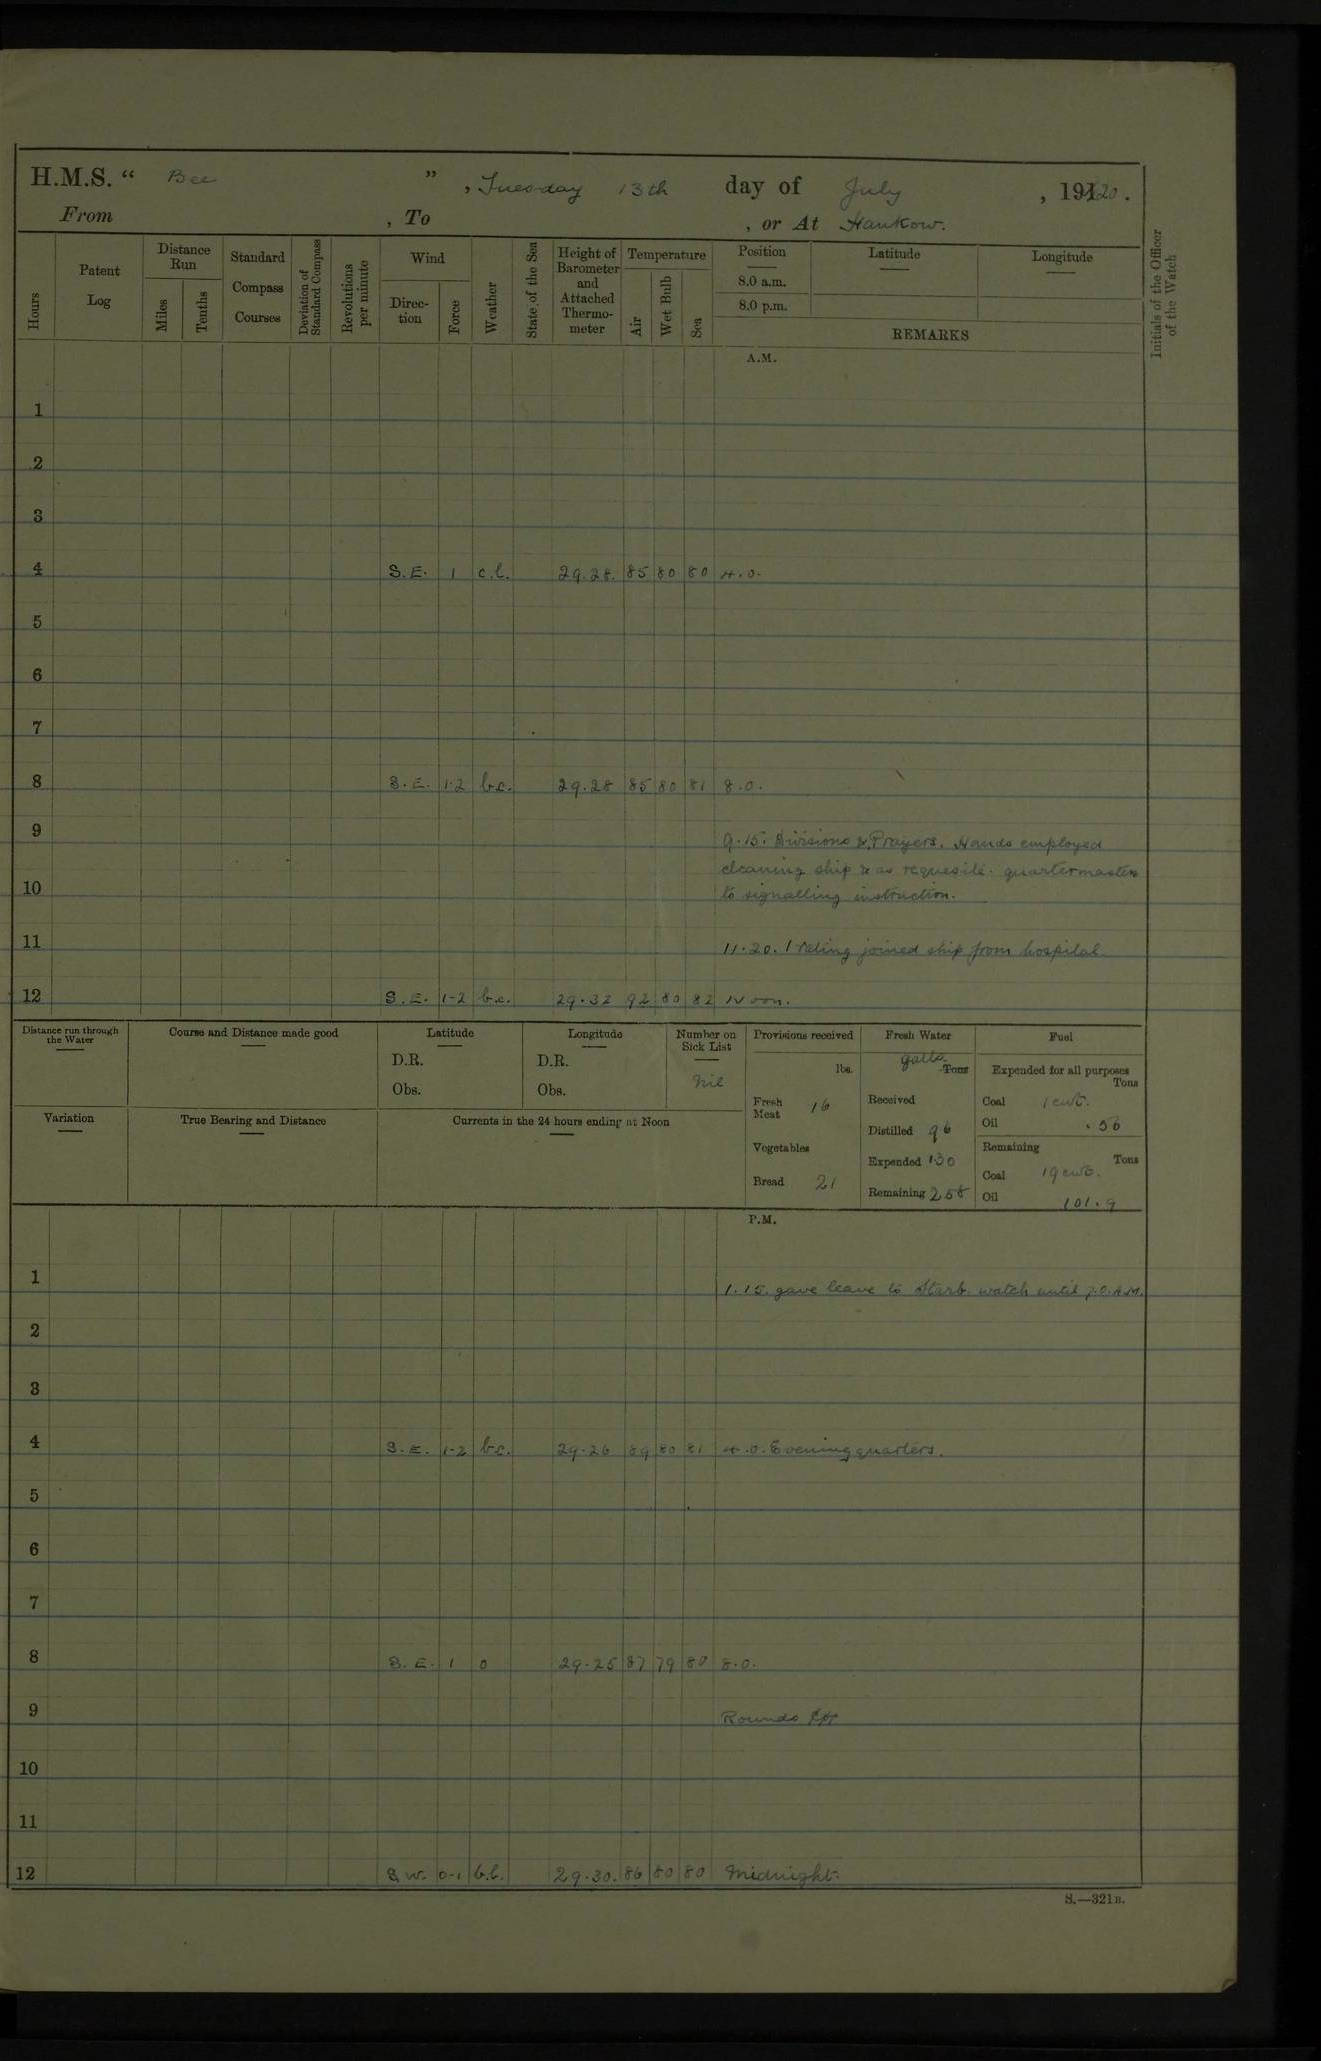 H.M.S. “ Bee ” , Tuesday 13th day of July , 1920 .
From , To , or At Hankow.
Hours
Patent Log
Distance Run
Miles
Tenths
Standard Compass Courses
Deviation of Standard Compass
Revolutions per minute
Wind
Direc-tion
Force
Weather
State of the Sea
Height of Barometer and Attached Thermo-meter
Temperature
Air
Wet Bulb
Sea
Position
8.0 a.m.
8.0 p.m.
Latitude
Longitude
REMARKS
Initials of the Officer of the Watch
A.M.
1
2
3
4 S.E. 1 c.l. 29.28. 85 80 80 4.0.
5
6
7
8 S.E. 1-2 b.c. 29.28 85 80 81 8.0.
9 9.15. Divisions & Prayers. Hands employed
cleaning ship & as requesite. quartermasters
10 to signalling instruction.
11 11.20. 1 rating joined ship from hospital.
12 S.E. 1-2 b.c. 29.32 92 80 82 Noon.
Distance run through the Water
Course and Distance made good
Latitude
D.R.
Obs.
Longitude
D.R.
Obs.
Number on Sick List
Nil
Provisions received
lbs.
Fresh Meat 16
Vegetables
Bread 21
Fresh Water
galls. Tons
Received
Distilled 96
Expended 130
Remaining 258
Fuel
Expended for all purposes
Tons
Coal 1 cwt.
Oil .56
Remaining
Tons
Coal 19 cwt.
Oil 101.9
Variation
True Bearing and Distance
Currents in the 24 hours ending at Noon
P.M.
1 1.15. gave leave to Starb. watch until 7.0.A.M.
2
3
4 S.E. 1-2 b.c. 29.26 89 80 81 4.0. Evening quarters.
5
6
7
8 S.E. 1 0 29.25 87 79 80 8.0.
9 Rounds
10
11
12 S.W. 0-1 b.c. 29.30. 86 80 80 Midnight.
S.—321B.